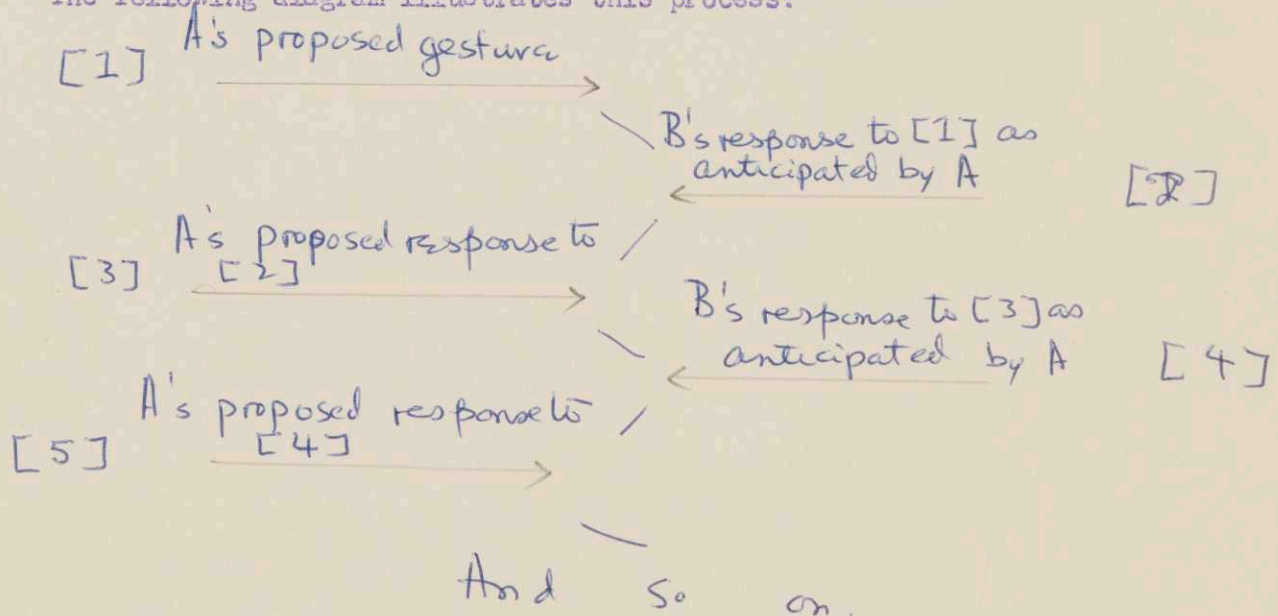 The following diagram illustrates this process:
A's proposed gesture
[1]
B's response to [1] as
anticipated by A
[2]
A's proposed response to
[3] [2]
B's response to [3] as
anticipated by A [4]
A's proposed response to
[5] [4]
And so on.